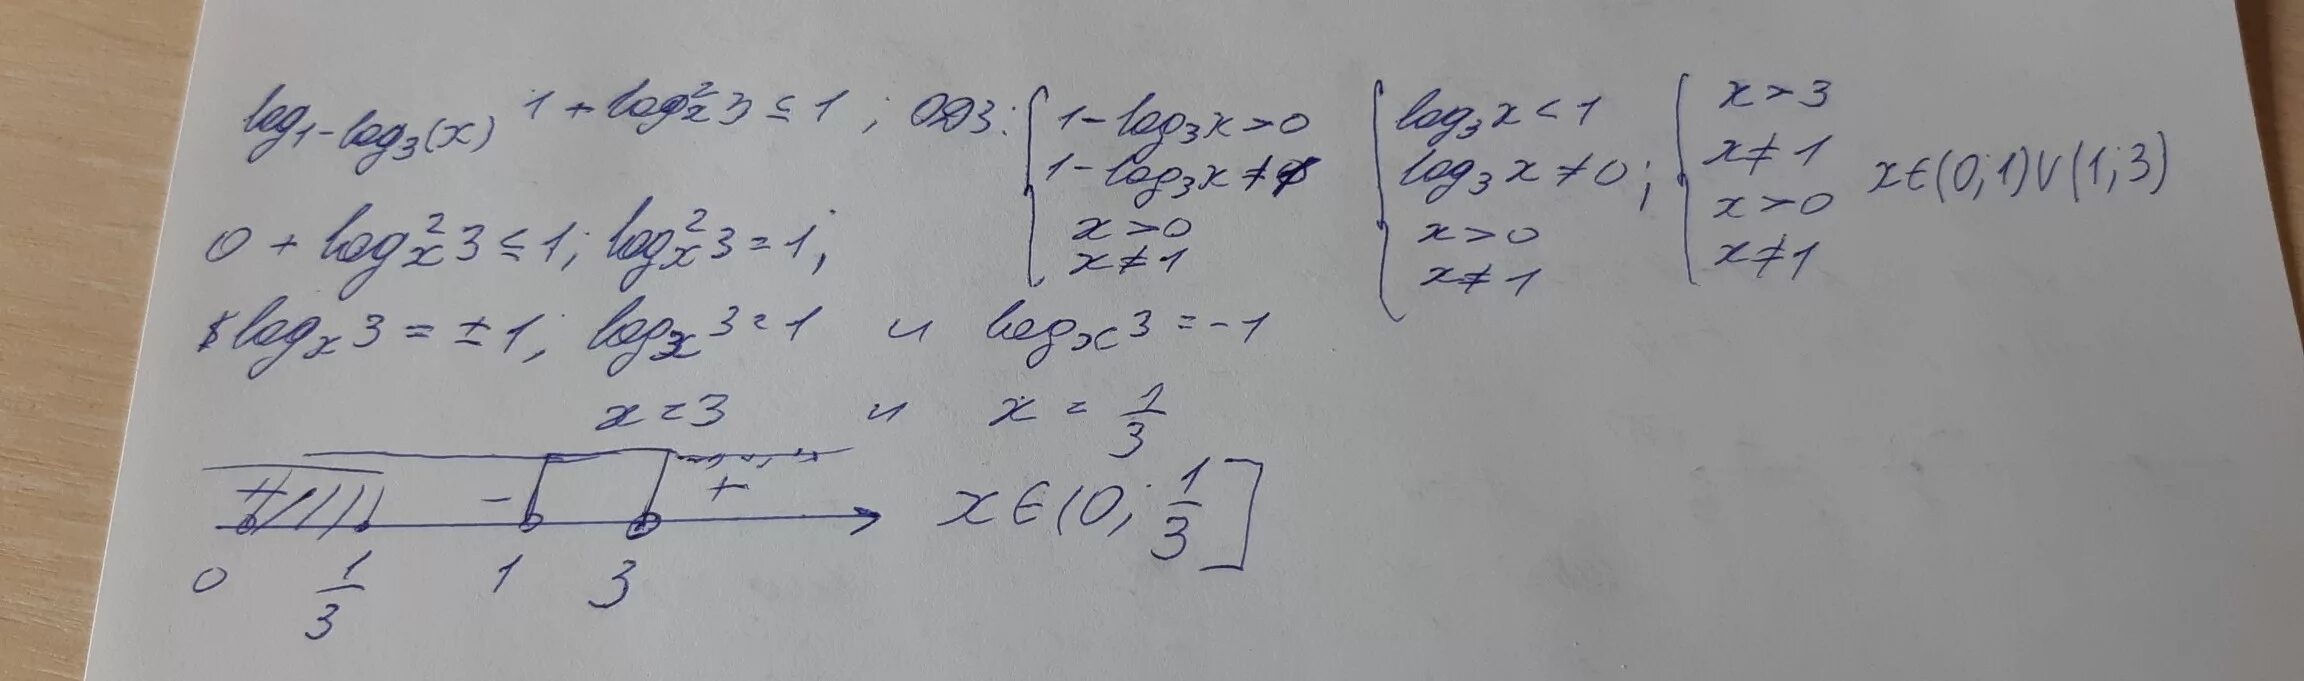 log₁₋log₃(x) 1 + logₓ²3 ≤ 1 ; ОДЗ: { 1 - log₃x > 0 { log₃x < 1 { x > 3
1 - log₃x ≠ 1 log₃x ≠ 0 ; x ≠ 1 x ∈ (0;1) ∪ (1;3)
x > 0 x > 0 x > 0
x ≠ 1 x ≠ 1 x ≠ 1
0 + logₓ²3 ≤ 1; logₓ²3 = 1;
logₓ3 = ± 1; logₓ3 = 1 и logₓ3 = -1
x = 3 и x = 1/3
+ - +
0 1/3 1 3
x ∈ (0; 1/3]